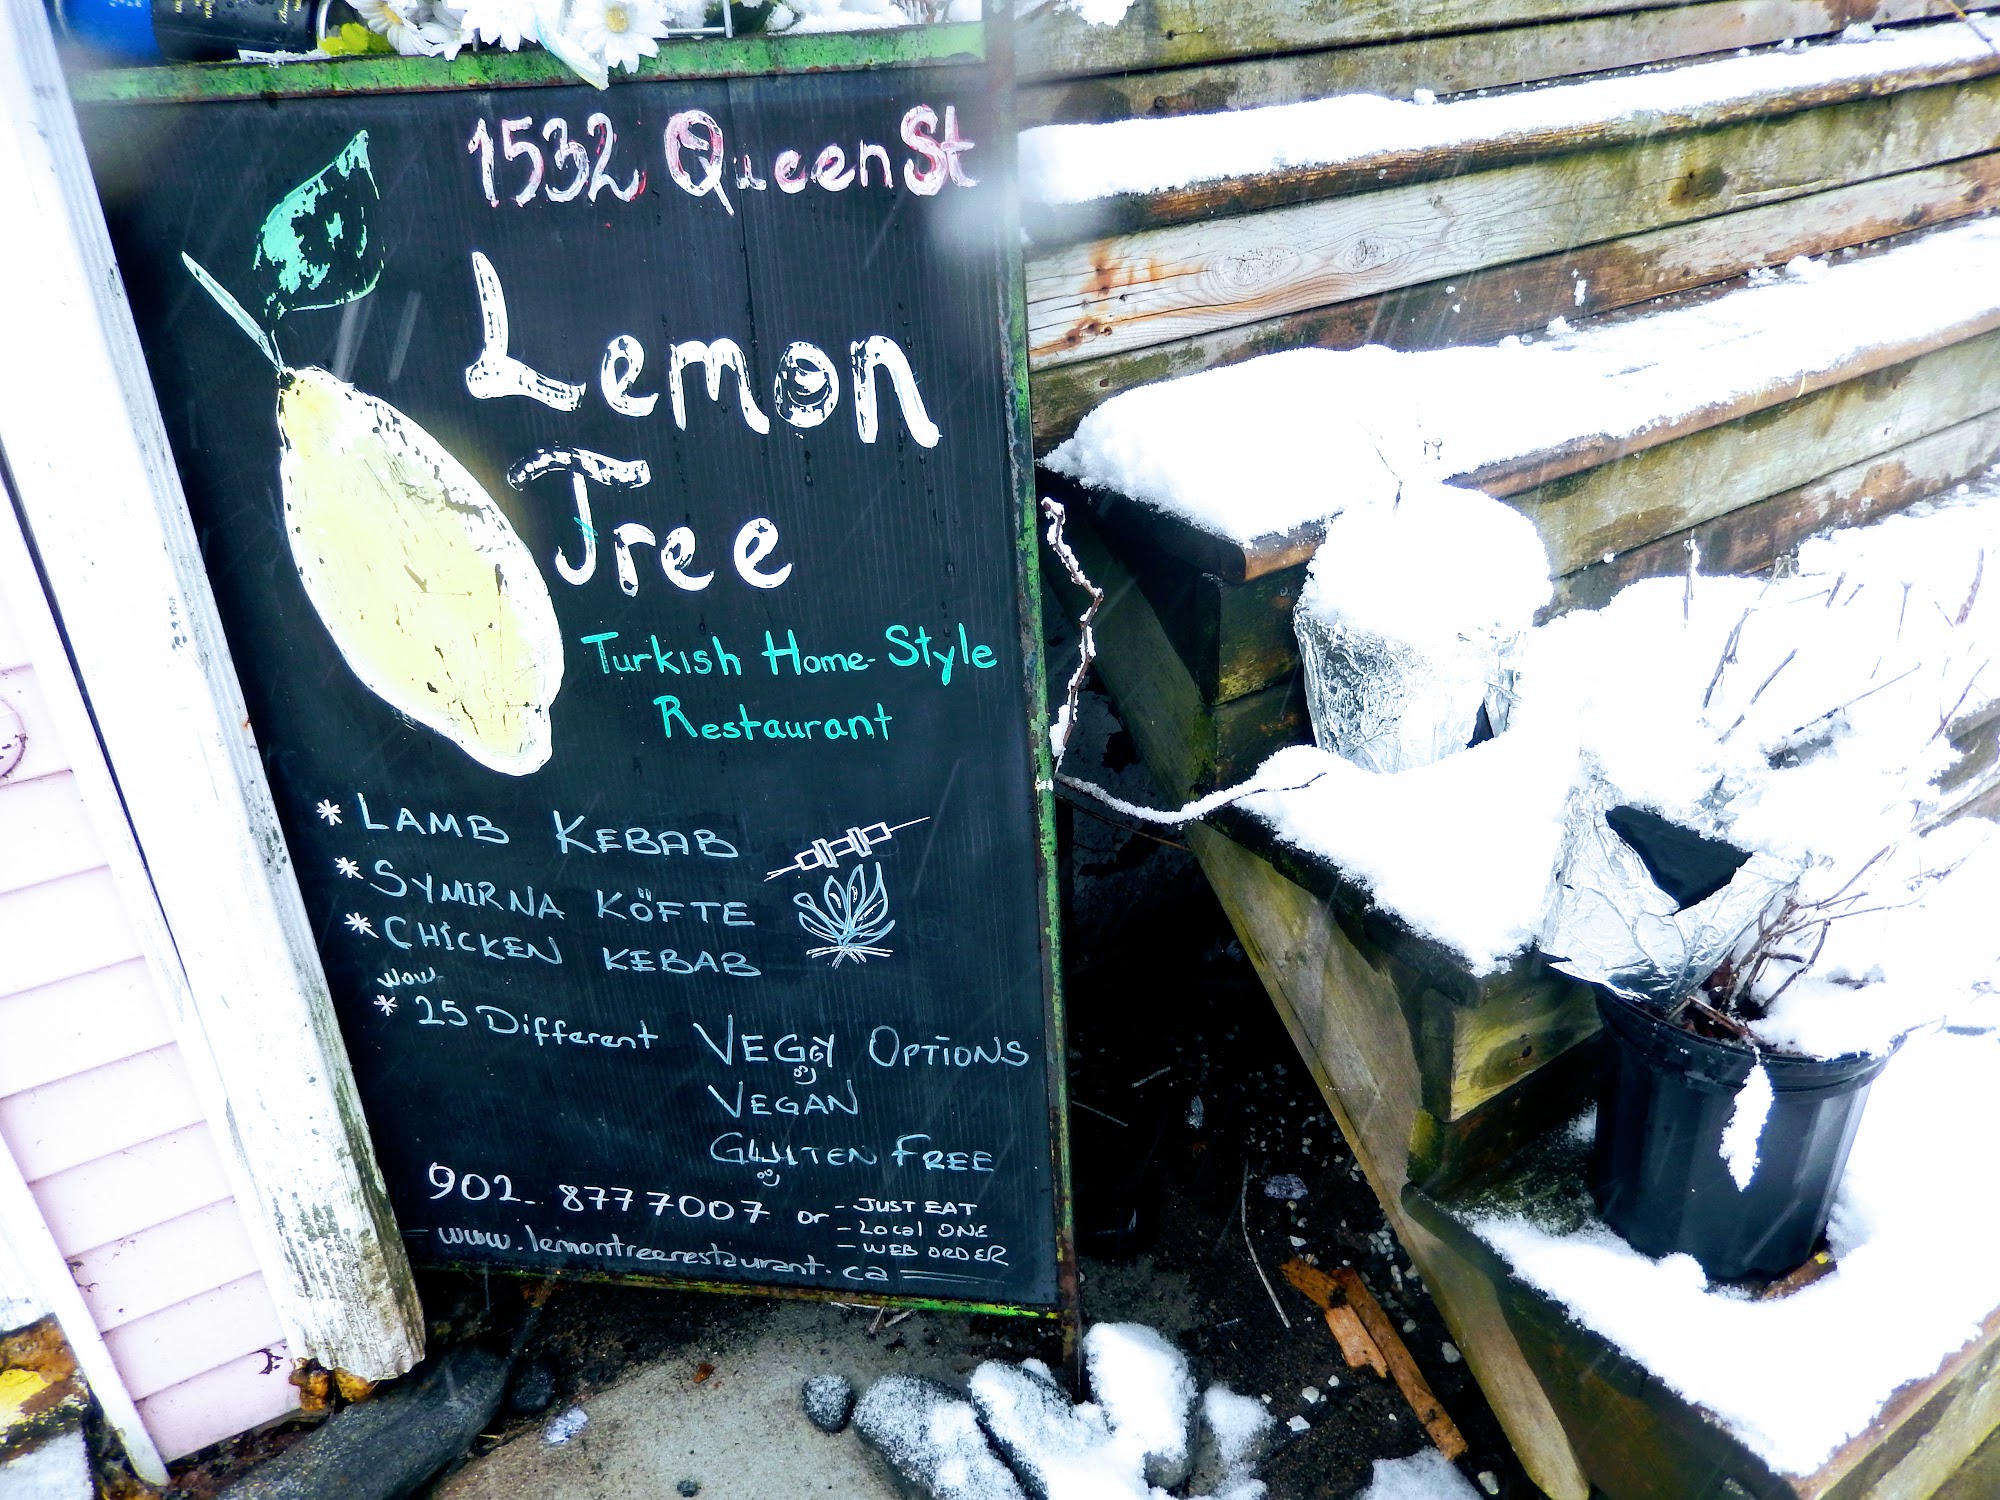 1532 Queen St
Lemon
Tree
Turkish Home-Style
Restaurant
* LAMB KEBAB
* SYMIRNA KÖFTE
* CHICKEN KEBAB
wow
* 25 Different VEGGY OPTIONS
VEGAN
GLUTEN FREE
902-8777007 or - JUST EAT
- Local ONE
- WEB ORDER
www.lemontreerestaurant.ca